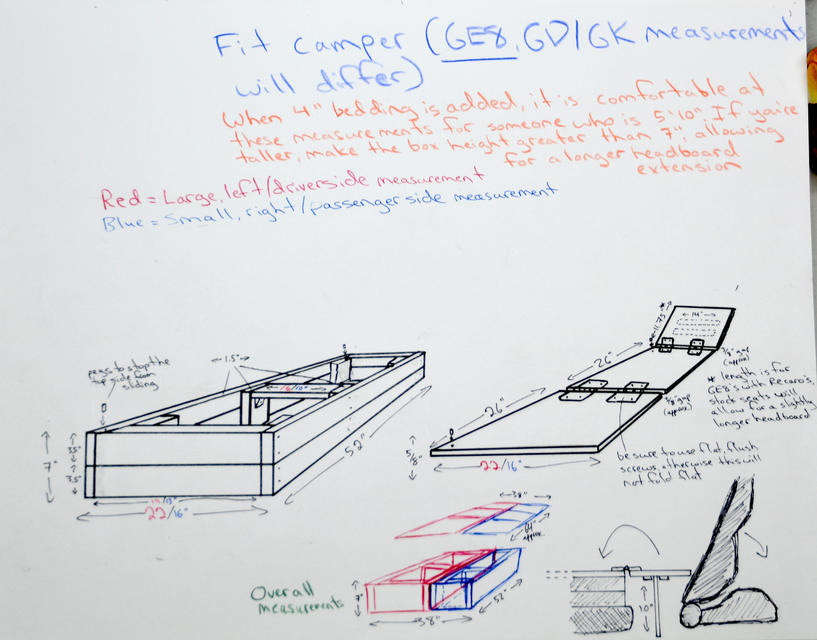 Fit camper (GE8, GD/GK measurements
will differ)
When 4" bedding is added, it is comfortable at
these measurements for someone who is 5'10". If you're
taller, make the box height greater than 7", allowing
for a longer headboard
extension
Red = Large, left/driverside measurement
Blue = Small, right/passenger side measurement
pegs to stop the
top side from
sliding
1.5"
7"
3.5"
3.5"
22/16"
52"
14"
11.75"
*
26"
26"
3/8" gap
(approx)
3/8" gap
(approx)
* length is for
GE8's with Recaro's,
stock seats will
allow for a slightly
longer headboard
5/8"
22/16"
be sure to use flat, flush
screws, otherwise this will
not fold flat
38"
64"
approx
Overall
measurements
7"
38"
52"
10"